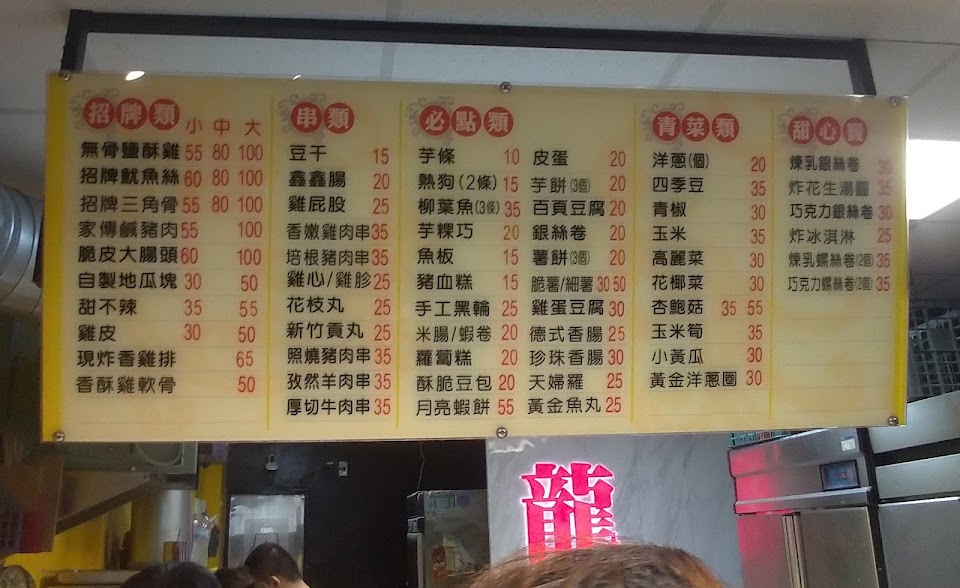 招牌類 小 中 大
無骨鹽酥雞 55 80 100
招牌魷魚絲 60 80 100
招牌三角骨 55 80 100
家傳鹹豬肉 55 100
脆皮大腸頭 60 100
自製地瓜塊 30 50
甜不辣 35 55
雞皮 30 50
現炸香雞排 65
香酥雞軟骨 50
串類
豆干 15
鑫鑫腸 20
雞屁股 25
香嫩雞肉串 35
培根豬肉串 35
雞心/雞胗 25
花枝丸 25
新竹貢丸 25
照燒豬肉串 35
孜然羊肉串 35
厚切牛肉串 35
必點類
芋條 10
熱狗(2條) 15
柳葉魚(3條) 35
芋粿巧 20
魚板 15
豬血糕 15
手工黑輪 25
米腸/蝦卷 20
蘿蔔糕 20
酥脆豆包 20
月亮蝦餅 55
皮蛋 20
芋餅(3個) 20
百頁豆腐 20
銀絲卷 20
薯餅(3個) 20
脆薯/細薯 30 50
雞蛋豆腐 30
德式香腸 25
珍珠香腸 30
天婦羅 25
黃金魚丸 25
青菜類
洋蔥(個) 20
四季豆 35
青椒 30
玉米 35
高麗菜 30
花椰菜 30
杏鮑菇 35 55
玉米筍 35
小黃瓜 30
黃金洋蔥圈 30
甜心寶
煉乳銀絲卷 30
炸花生湯圓 35
巧克力銀絲卷 30
炸冰淇淋 25
煉乳螺絲卷(2個) 35
巧克力螺絲卷(2個) 35
龍